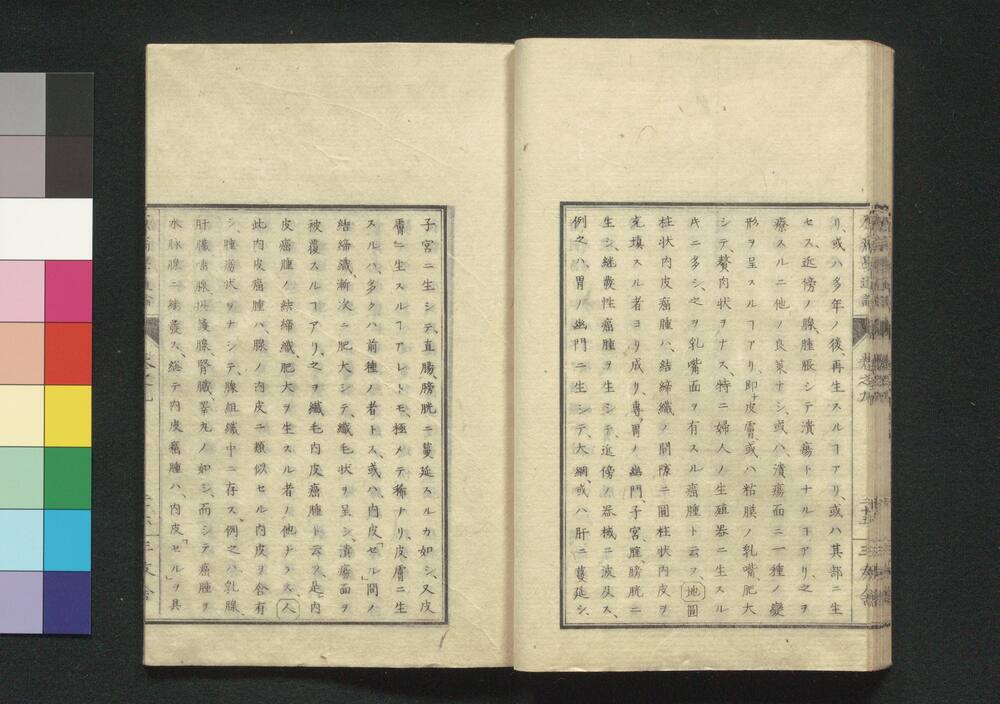 リ、或ハ多年ノ後、再生スルヿアリ、或ハ其部ニ生
セス、近傍ノ腺、腫脹シテ潰瘍トナルヿアリ、之ヲ
療スルニ他ノ良菓ナシ、或ハ潰瘍面ニ一種ノ變
形ヲ呈スルヿアリ、即皮膚、或ハ粘膜ノ乳嘴、肥大
シテ、贅肉状ヲナス、特ニ婦人ノ生殖器ニ生スル
キニ多シ、之ヲ乳嘴面ヲ有スル癌腫ト云フ、地圓
柱状内皮癌腫ハ、結締織ノ間隙ニ圓柱状内皮ヲ
充填スル者ヨリ成リ、専胃ノ幽門、子宮、膣、膀胱ニ
生シ、継發性癌腫ヲ生シテ、近傍ノ器械ニ波及ス、
例之ハ、胃ノ幽門ニ生シテ、大網、或ハ肝ニ蔓延シ、
子宮ニ生シテ、直腸、膀胱ニ蔓延スルカ如シ、又皮
膚ニ生スルヿアレトモ、極メテ稀ナリ、皮膚ニ生
スルハ、多クハ前種ノ者トス、或ハ内皮「セル」間ノ
結締織、漸次ニ肥大シテ、織毛状ヲ呈シ、潰瘍面ヲ
被覆スルヿアリ、之ヲ織毛内皮癌腫ト云フ、是内
皮癌腫ノ結締織、肥大ヲ生スル者ノ他ナラス、人
此内皮癌腫ハ、腺ノ内皮ニ類似セル内皮ヲ含有
シ、腫瘍状ヲナシテ、腺組織中ニ存ス、例之ハ、乳腺、
肝臓、唾腺、攝護腺、腎臓、睾丸ノ如シ、而シテ癌腫ヲ
水脉腺ニ結發ス、総テ内皮癌腫ハ、内皮「セル」ヲ具